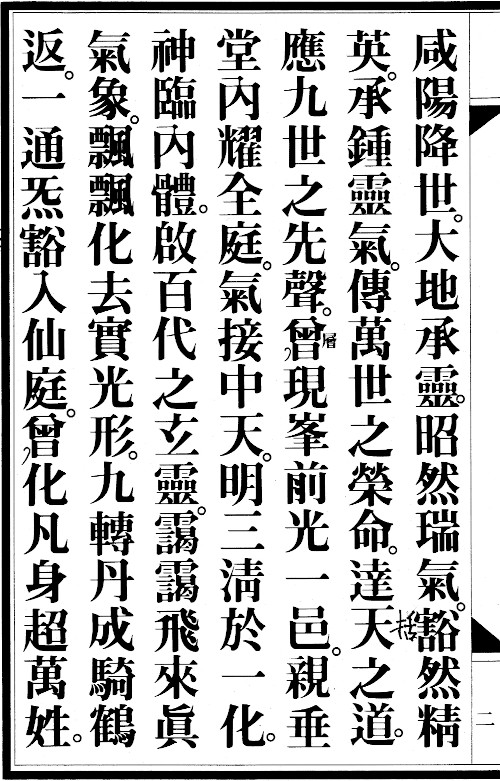 咸陽降世。大地承靈。昭然瑞氣。豁然精
英。承鍾靈氣。傳萬世之榮命。達天之道。
應九世之先聲。曾現峯前光一邑。親垂
堂內耀全庭。氣接中天。明三淸於一化。
神臨內體。啟百代之玄靈。靄靄飛來眞
氣象。飄飄化去實光形。九轉丹成騎鶴
返。一通炁豁入仙庭。曾化凡身超萬姓。
層
括
二